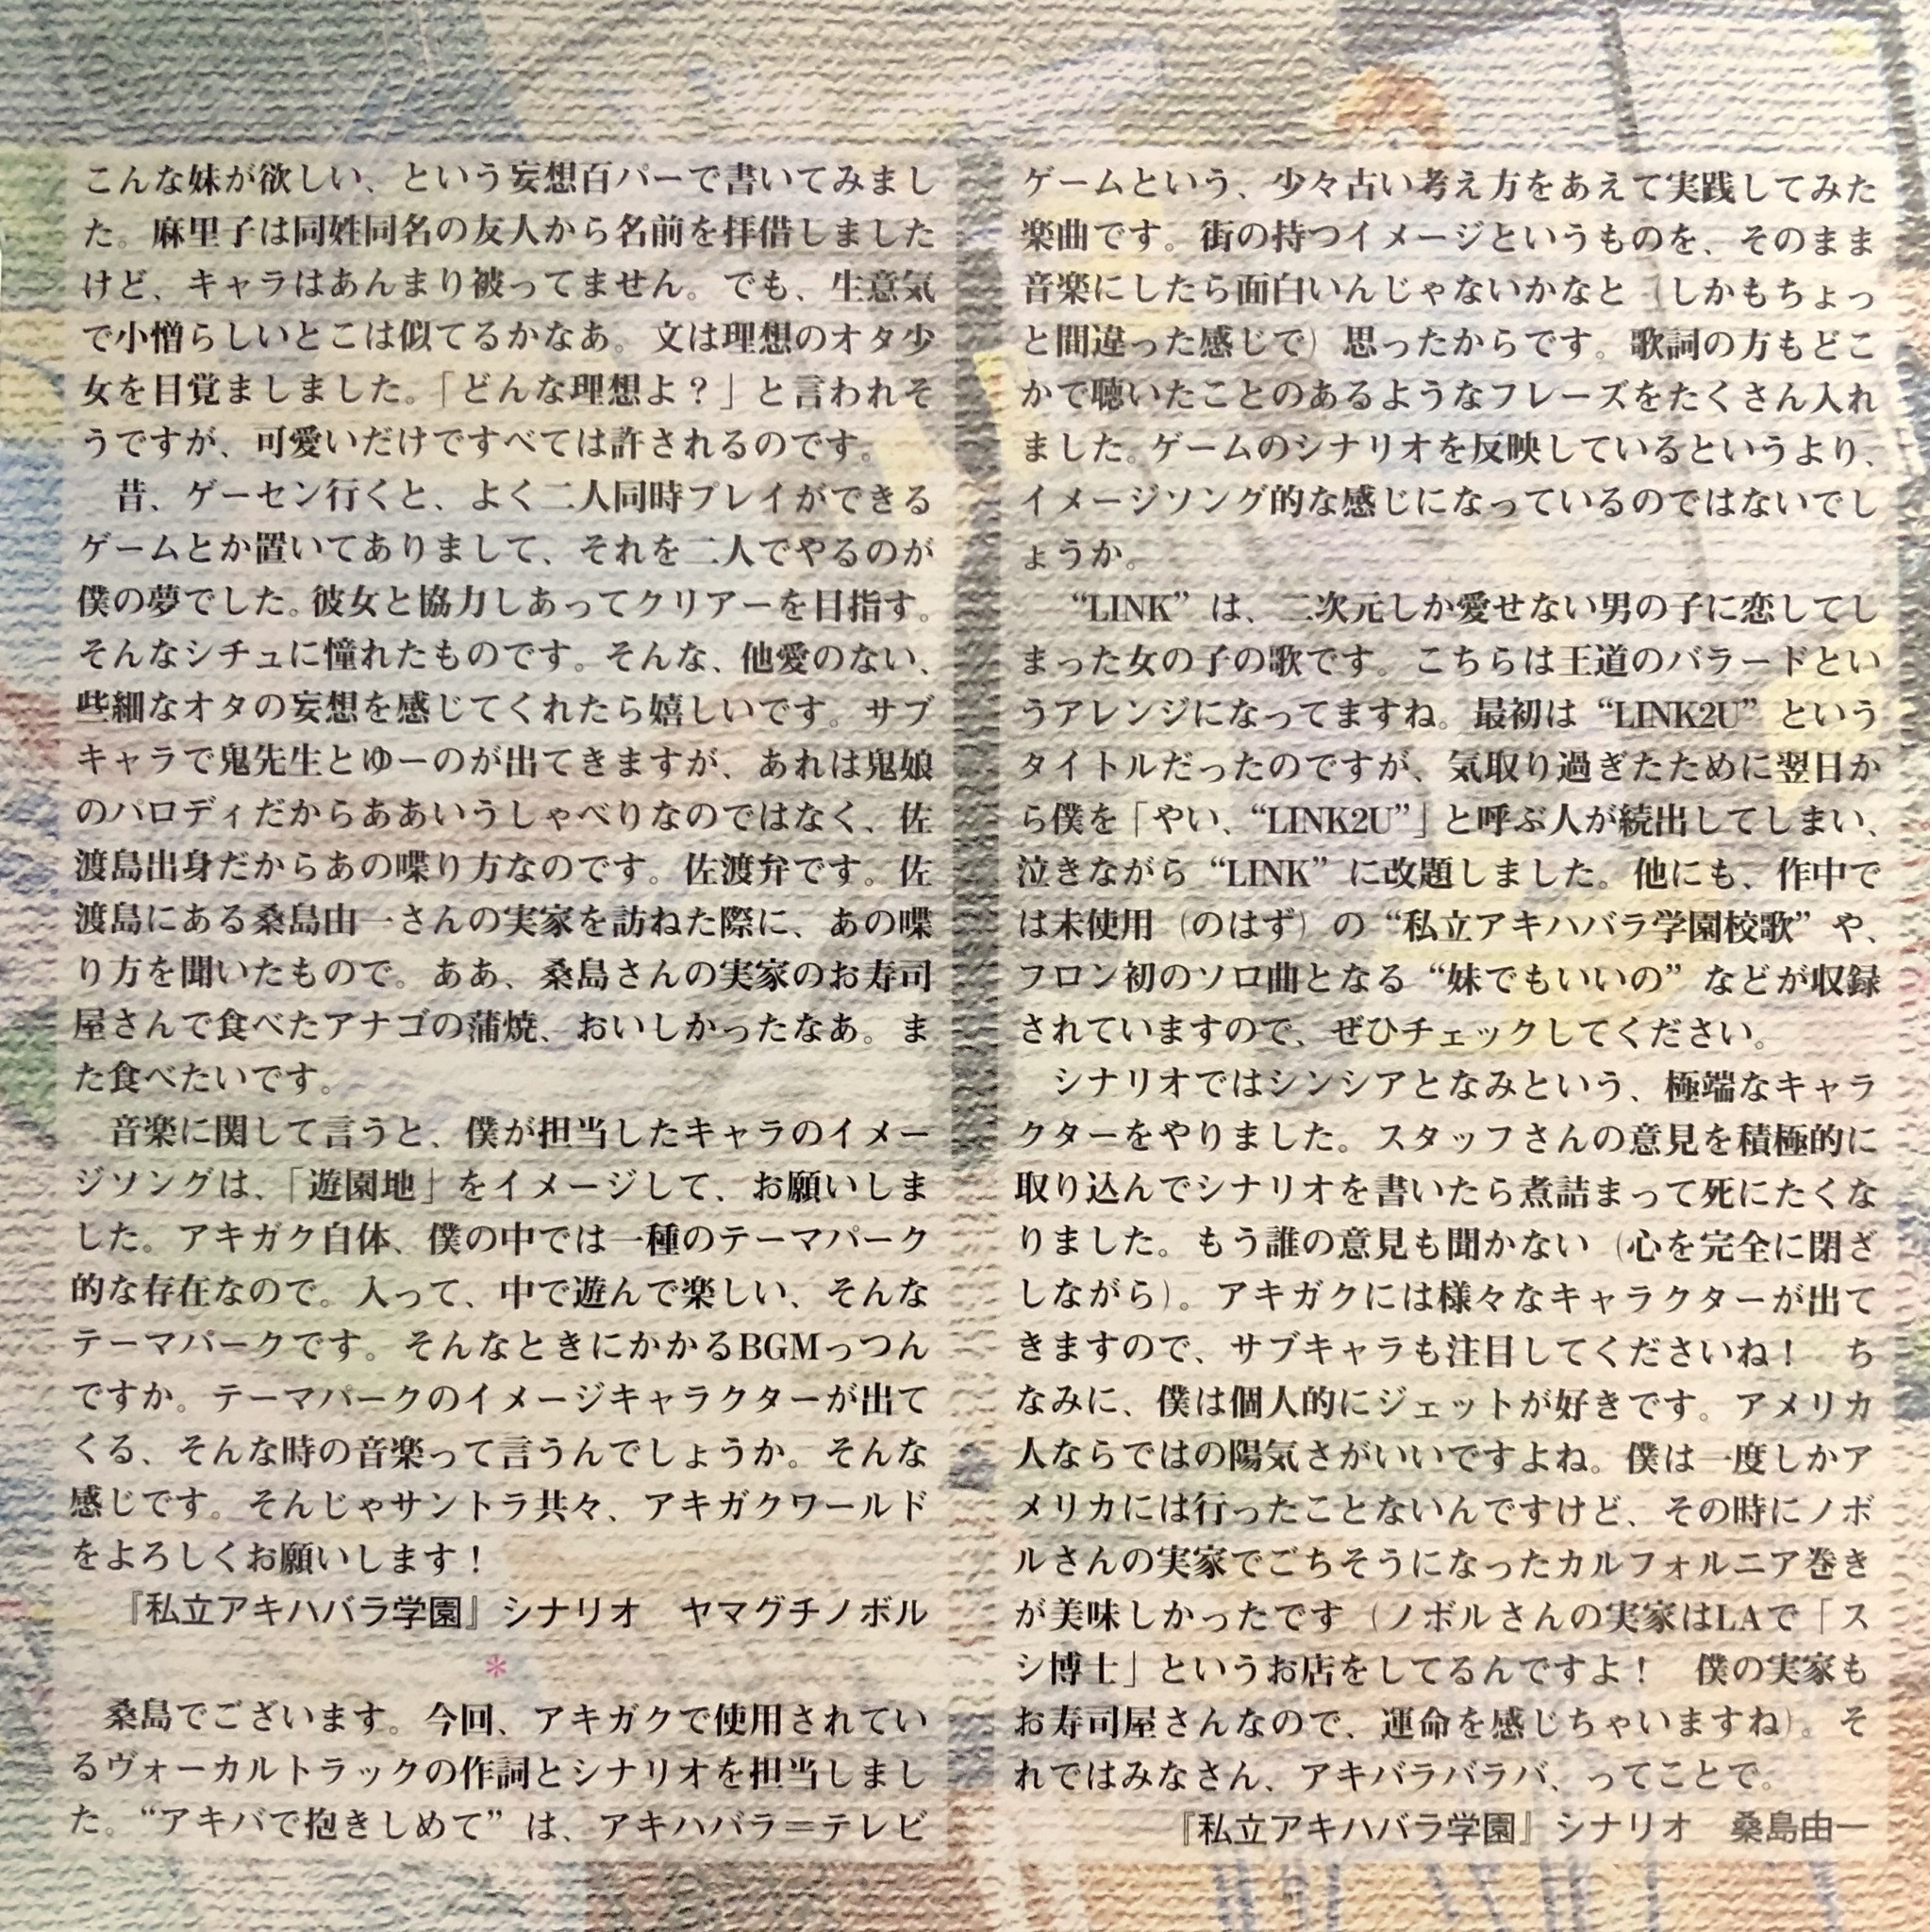 こんな妹が欲しい、という妄想百パーで書いてみまし
た。麻里子は同姓同名の友人から名前を拝借しました
けど、キャラはあんまり被ってません。でも、生意気
で小憎らしいとこは似てるかなあ。文は理想のオタ少
女を目覚ましました。「どんな理想よ？」と言われそ
うですが、可愛いだけですべては許されるのです。
　昔、ゲーセン行くと、よく二人同時プレイができる
ゲームとか置いてありまして、それを二人でやるのが
僕の夢でした。彼女と協力しあってクリアーを目指す。
そんなシチュに憧れたものです。そんな、他愛のない、
些細なオタの妄想を感じてくれたら嬉しいです。サブ
キャラで鬼先生とゆーのが出てきますが、あれは鬼娘
のパロディだからああいうしゃべりなのではなく、佐
渡島出身だからあの喋り方なのです。佐渡弁です。佐
渡島にある桑島由一さんの実家を訪ねた際に、あの喋
り方を聞いたもので。ああ、桑島さんの実家のお寿司
屋さんで食べたアナゴの蒲焼、おいしかったなあ。ま
た食べたいです。
　音楽に関して言うと、僕が担当したキャラのイメー
ジソングは、「遊園地」をイメージして、お願いしま
した。アキガク自体、僕の中では一種のテーマパーク
的な存在なので。入って、中で遊んで楽しい、そんな
テーマパークです。そんなときにかかるBGMっつん
ですか。テーマパークのイメージキャラクターが出て
くる、そんな時の音楽って言うんでしょうか。そんな
感じです。そんじゃサントラ共々、アキガクワールド
をよろしくお願いします！
『私立アキハバラ学園』シナリオ　ヤマグチノボル
＊
　桑島でございます。今回、アキガクで使用されてい
るヴォーカルトラックの作詞とシナリオを担当しまし
た。“アキバで抱きしめて”は、アキハバラ＝テレビ
ゲームという、少々古い考え方をあえて実践してみた
楽曲です。街の持つイメージというものを、そのまま
音楽にしたら面白いんじゃないかなと（しかもちょっ
と間違った感じで）思ったからです。歌詞の方もどこ
かで聴いたことのあるようなフレーズをたくさん入れ
ました。ゲームのシナリオを反映しているというより、
イメージソング的な感じになっているのではないでし
ょうか。
　“LINK”は、二次元しか愛せない男の子に恋してし
まった女の子の歌です。こちらは王道のバラードとい
うアレンジになってますね。最初は“LINK2U”という
タイトルだったのですが、気取り過ぎたために翌日か
ら僕を「やい、“LINK2U”」と呼ぶ人が続出してしまい、
泣きながら“LINK”に改題しました。他にも、作中で
は未使用（のはず）の“私立アキハバラ学園校歌”や、
フロン初のソロ曲となる“妹でもいいの”などが収録
されていますので、ぜひチェックしてください。
　シナリオではシンシアとなみという、極端なキャラ
クターをやりました。スタッフさんの意見を積極的に
取り込んでシナリオを書いたら煮詰まって死にたくな
りました。もう誰の意見も聞かない（心を完全に閉ざ
しながら）。アキガクには様々なキャラクターが出て
きますので、サブキャラも注目してくださいね！　ち
なみに、僕は個人的にジェットが好きです。アメリカ
人ならではの陽気さがいいですよね。僕は一度しかア
メリカには行ったことないんですけど、その時にノボ
ルさんの実家でごちそうになったカルフォルニア巻き
が美味しかったです（ノボルさんの実家はLAで「ス
シ博士」というお店をしてるんですよ！　僕の実家も
お寿司屋さんなので、運命を感じちゃいますね）。そ
れではみなさん、アキバラバラバ、ってことで。
『私立アキハバラ学園』シナリオ　桑島由一